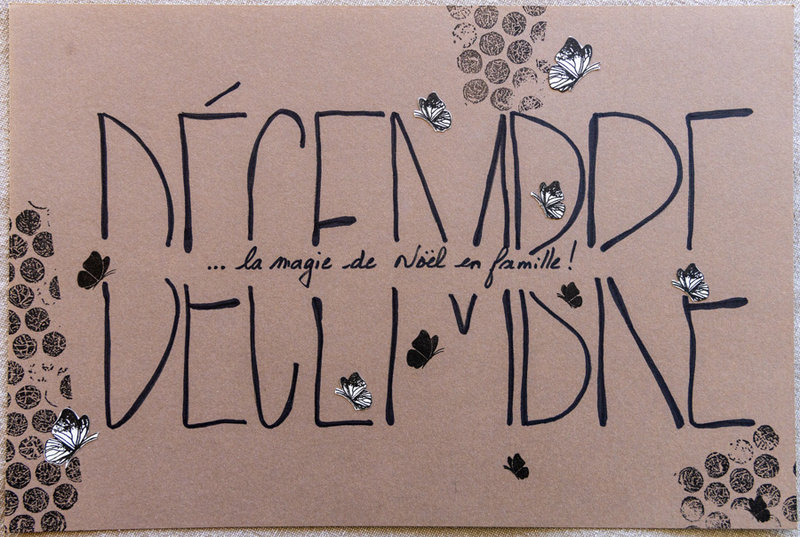 DÉCEMBRE
... la magie de Noël en famille!